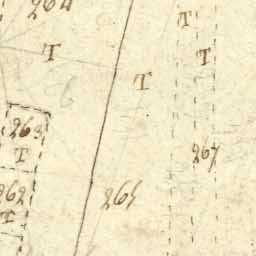 264
T
T
T
T
263
T
267
262
T
265